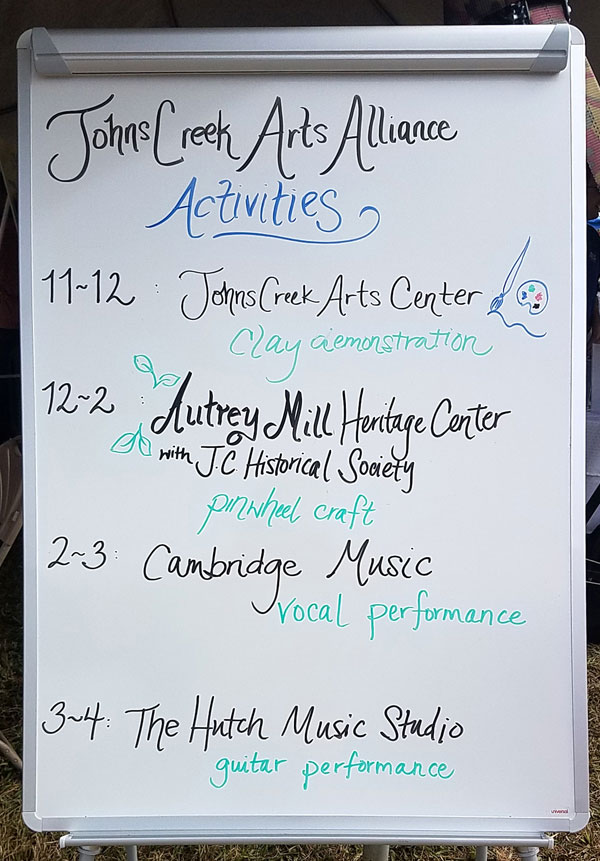 Johns Creek Arts Alliance
Activities
11~12 : Johns Creek Arts Center
Clay demonstration
12~2 : Autrey Mill Heritage Center
with J.C Historical Society
pinwheel craft
2~3: Cambridge Music
vocal performance
3~4: The Hutch Music Studio
guitar performance
universal